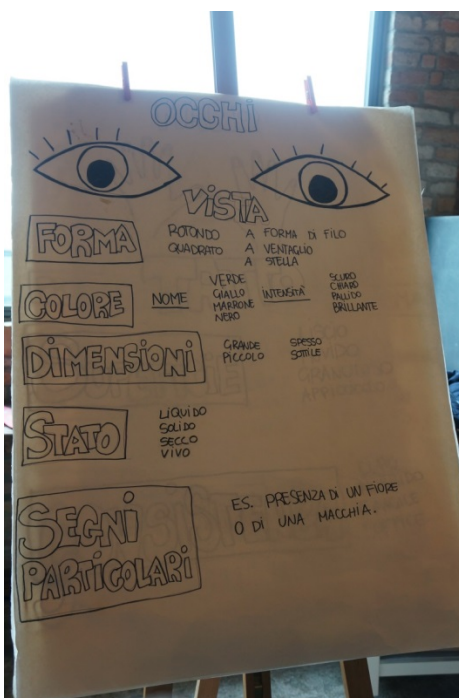 OCCHI
VISTA
FORMA
ROTONDO A FORMA DI FILO
QUADRATO A VENTAGLIO
A STELLA
COLORE
NOME
VERDE
GIALLO
MARRONE
NERO
INTENSITÀ
SCURO
CHIARO
PALLIDO
BRILLANTE
DIMENSIONI
GRANDE SPESSO
PICCOLO SOTTILE
STATO
LIQUIDO
SOLIDO
SECCO
VIVO
SEGNI
PARTICOLARI
ES. PRESENZA DI UN FIORE
O DI UNA MACCHIA.